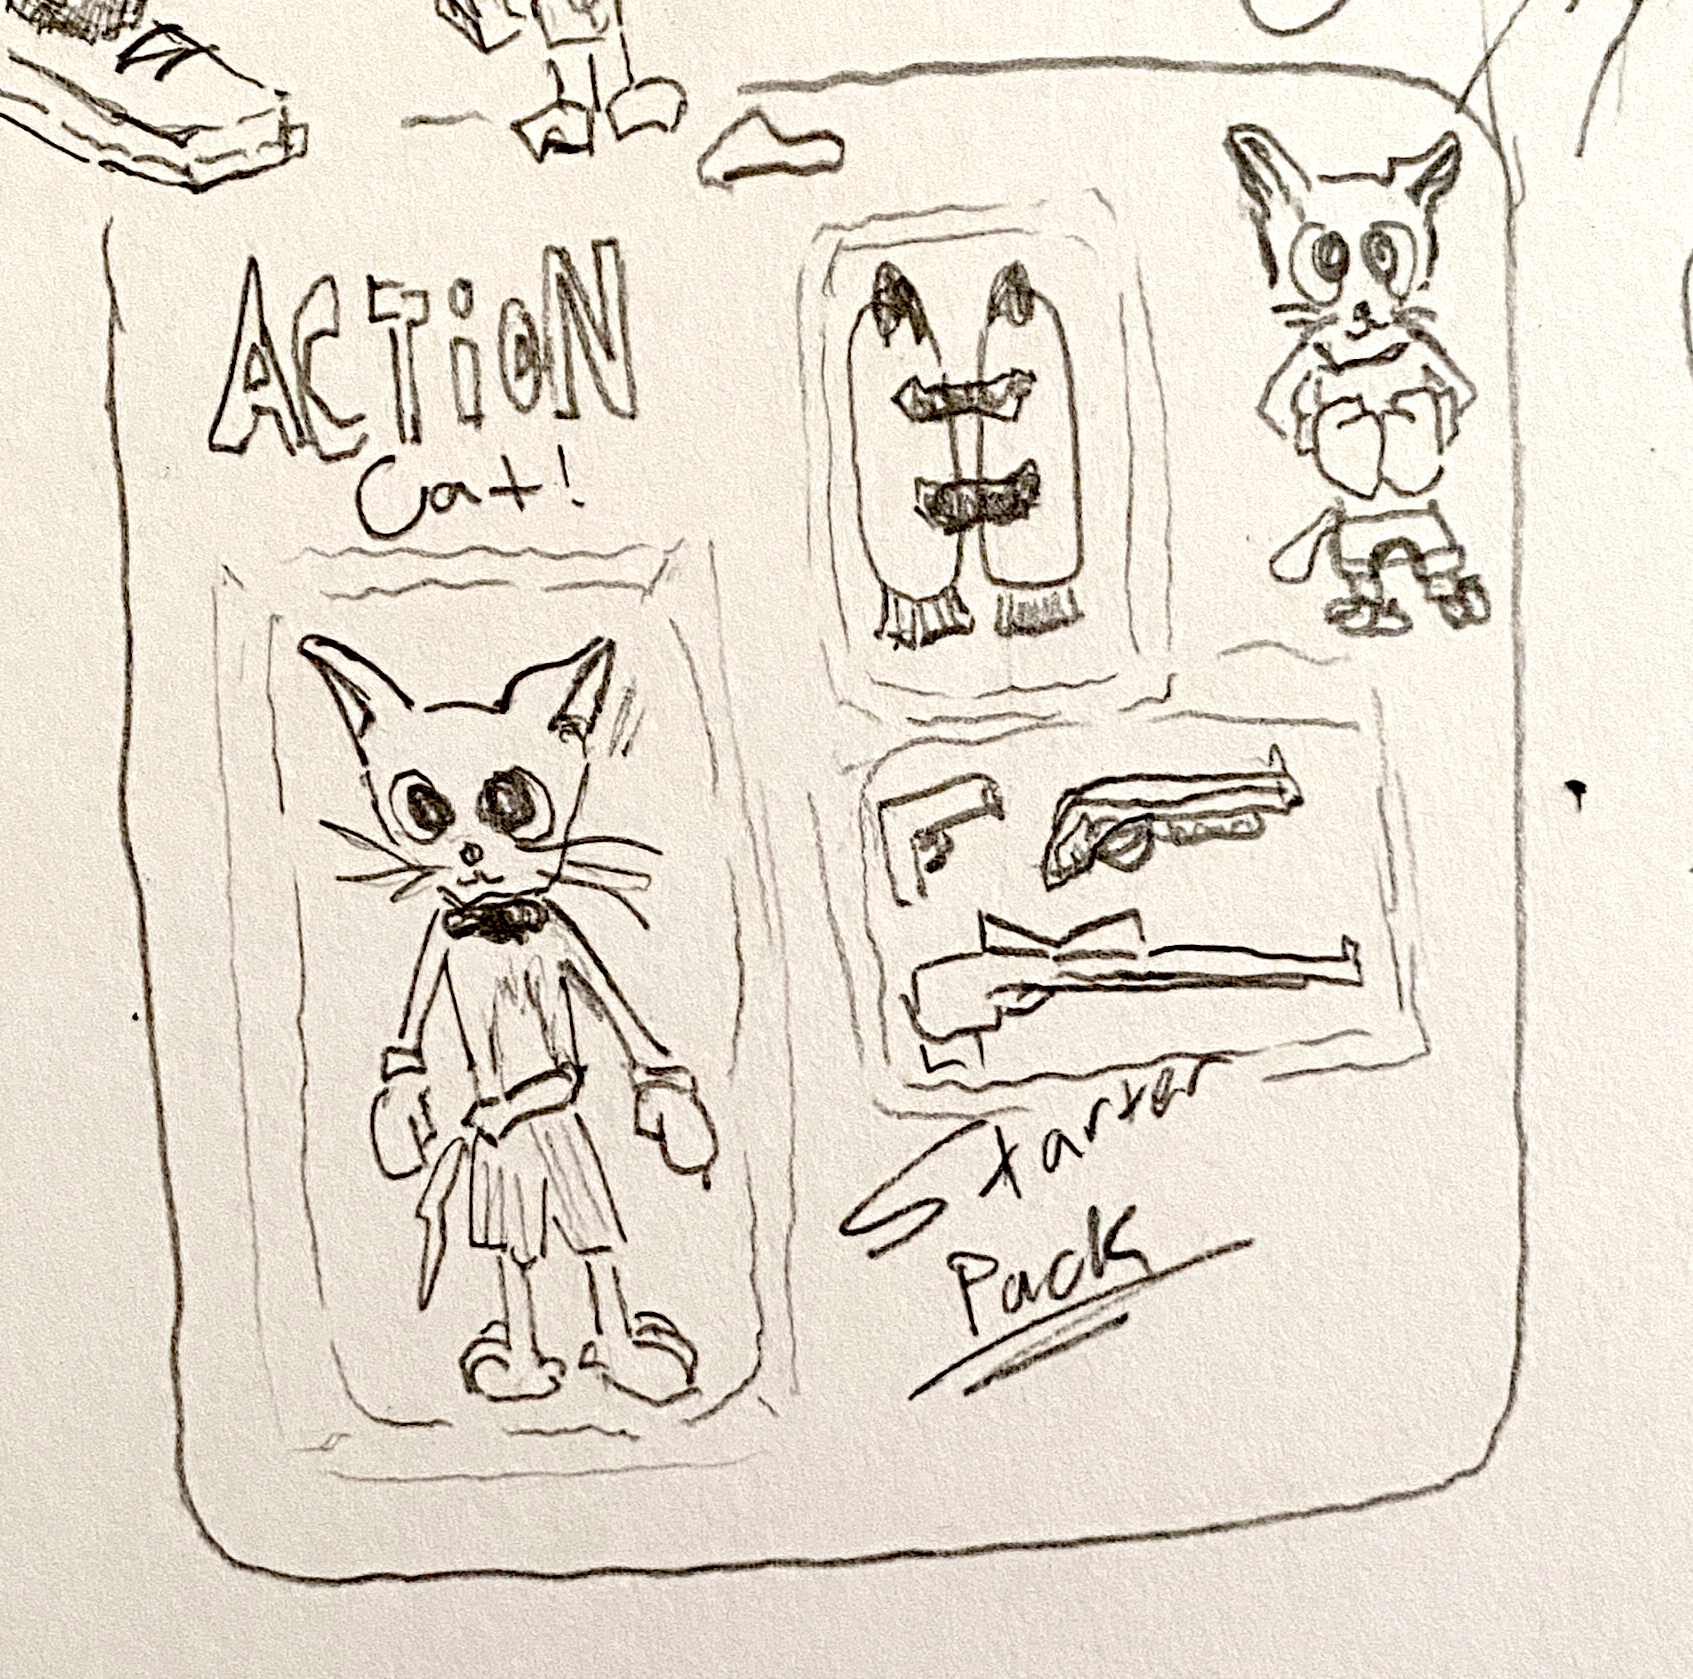 ACTiON
Cat!
Starter
Pack